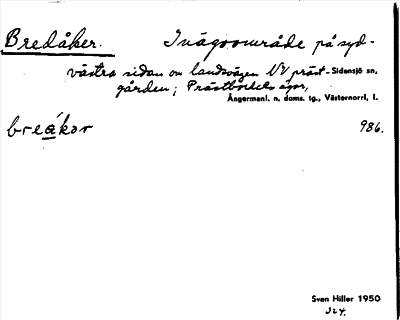 Bredåker. Inägoområde på syd-
västra sidan om landsvägen NV präst- Sidensjö sn,
gården; Prästbordets ägor,
Ångermanl. n. doms. tg., Västernorrl. l.
breakor 986.
Sven Hiller 1950